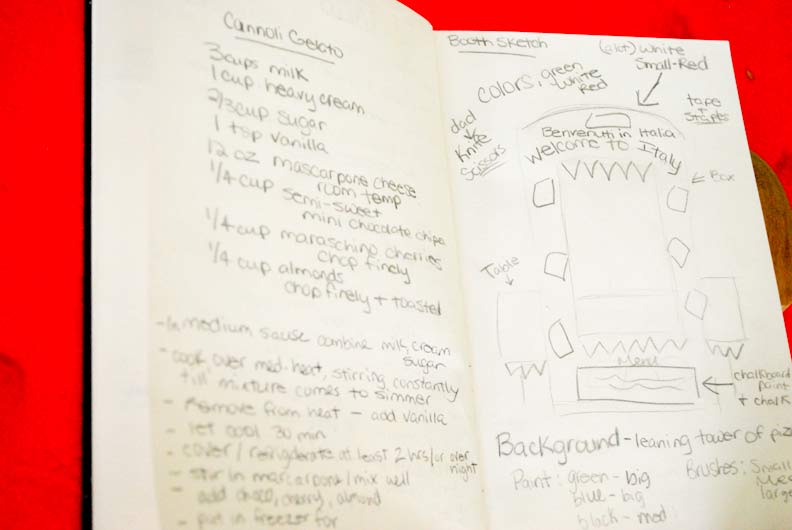 Cannoli Gelato
3 cups milk
1 cup heavy cream
2/3 cup sugar
1 tsp vanilla
12 oz mascarpone cheese
room temp
1/4 cup semi-sweet
mini chocolate chips
1/4 cup maraschino cherries
chop finely
1/4 cup almonds
chop finely + toasted
- In medium sause combine milk, cream
sugar
- cook over med. heat, stirring constantly
till mixture comes to simmer
- Remove from heat - add vanilla
- let cool 30 min
- cover / refrigerate at least 2 hrs / or over
night
- stir in marcarpone / mix well
- add choco, cherry, almond
- put in freezer for
Booth Sketch
(alot) white
Small-Red
colors, green
white
red
tape
+
staples
dad
Knife
Scissors
Benvenuti in Italia
Welcome to Italy
Box
Table
Menu
chalkboard
paint
+ chalk
Background - leaning tower of piz
Paint: green - big
blue - big
black - med
Brushes: Small
Med
large